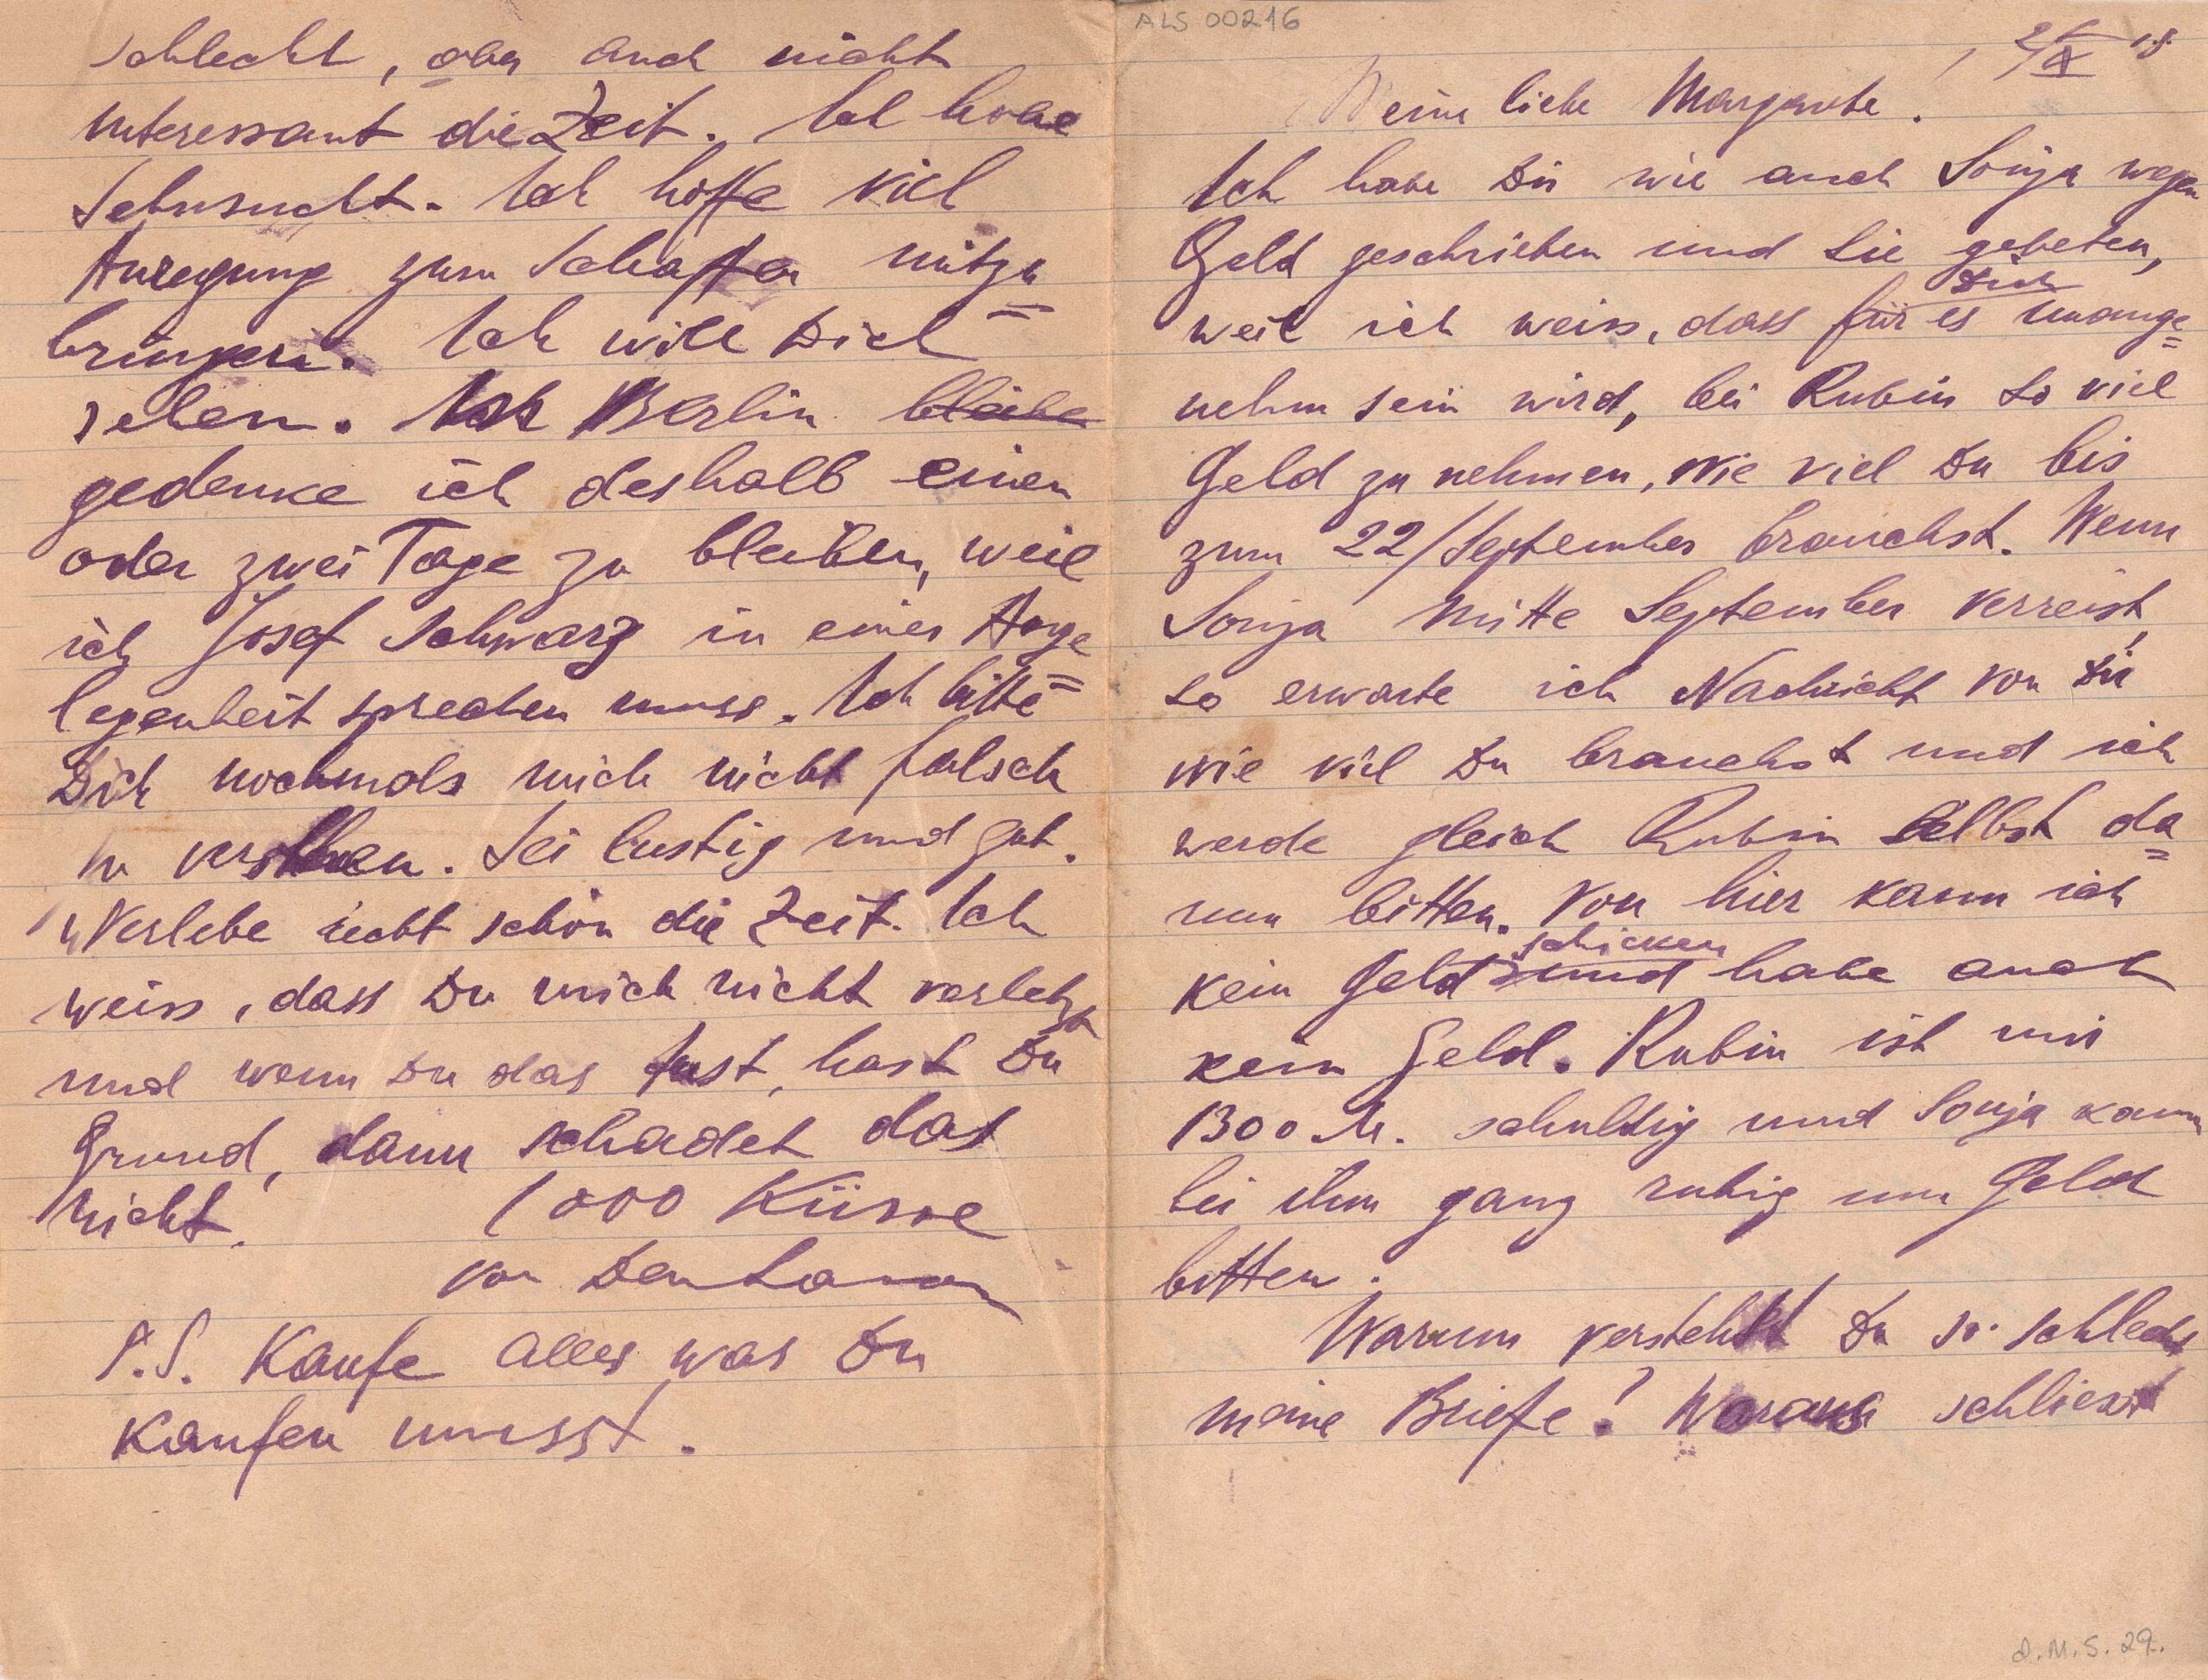 ALS 00216
2/IX 18
Meine liebe Margarete!
Ich habe Dir wie auch Sonja wegen
Geld geschrieben und Sie gebeten,
weil ich weiss, dass für Dich es unange=
nehm sein wird, bei Rubin so viel
Geld zu nehmen, wie viel Du bis
zum 22/September brauchst. Wenn
Sonja Mitte September verreist,
so erwarte ich Nachricht von Dir
wie viel Du brauchst und ich
werde gleich Rubin selbst da=
rum bitten. Von hier kann ich
kein Geld schicken und habe auch
kein Geld. Rubin ist mir
1300 M. schuldig und Sonja kann
bei ihm ganz ruhig um Geld
bitten.
Warum verstehst Du so schlecht
meine Briefe? Woraus schliesst
D.M.S. 29.
schlecht, aber auch nicht
interessant die Zeit. Ich habe
Sehnsucht. Ich hoffe viel
Anregung zum Schaffen mitzu=
bringen. Ich will Dich
sehen. Berlin bleibe
gedenke ich deshalb einen
oder zwei Tage zu bleiben, weil
ich Josef Schwarz in einer Ange=
legenheit sprechen muss. Ich bitte
Dich nochmals mich nicht falsch
zu verstehen. Sei lustig und gut.
Verlebe recht schön die Zeit. Ich
weiss, dass Du mich nicht verletzst
und wenn Du das tust, hast Du
Grund, dann schadet das
nicht. 1000 Küsse
von Deu Lasar
P.S. Kaufe alles was Du
kaufen musst.